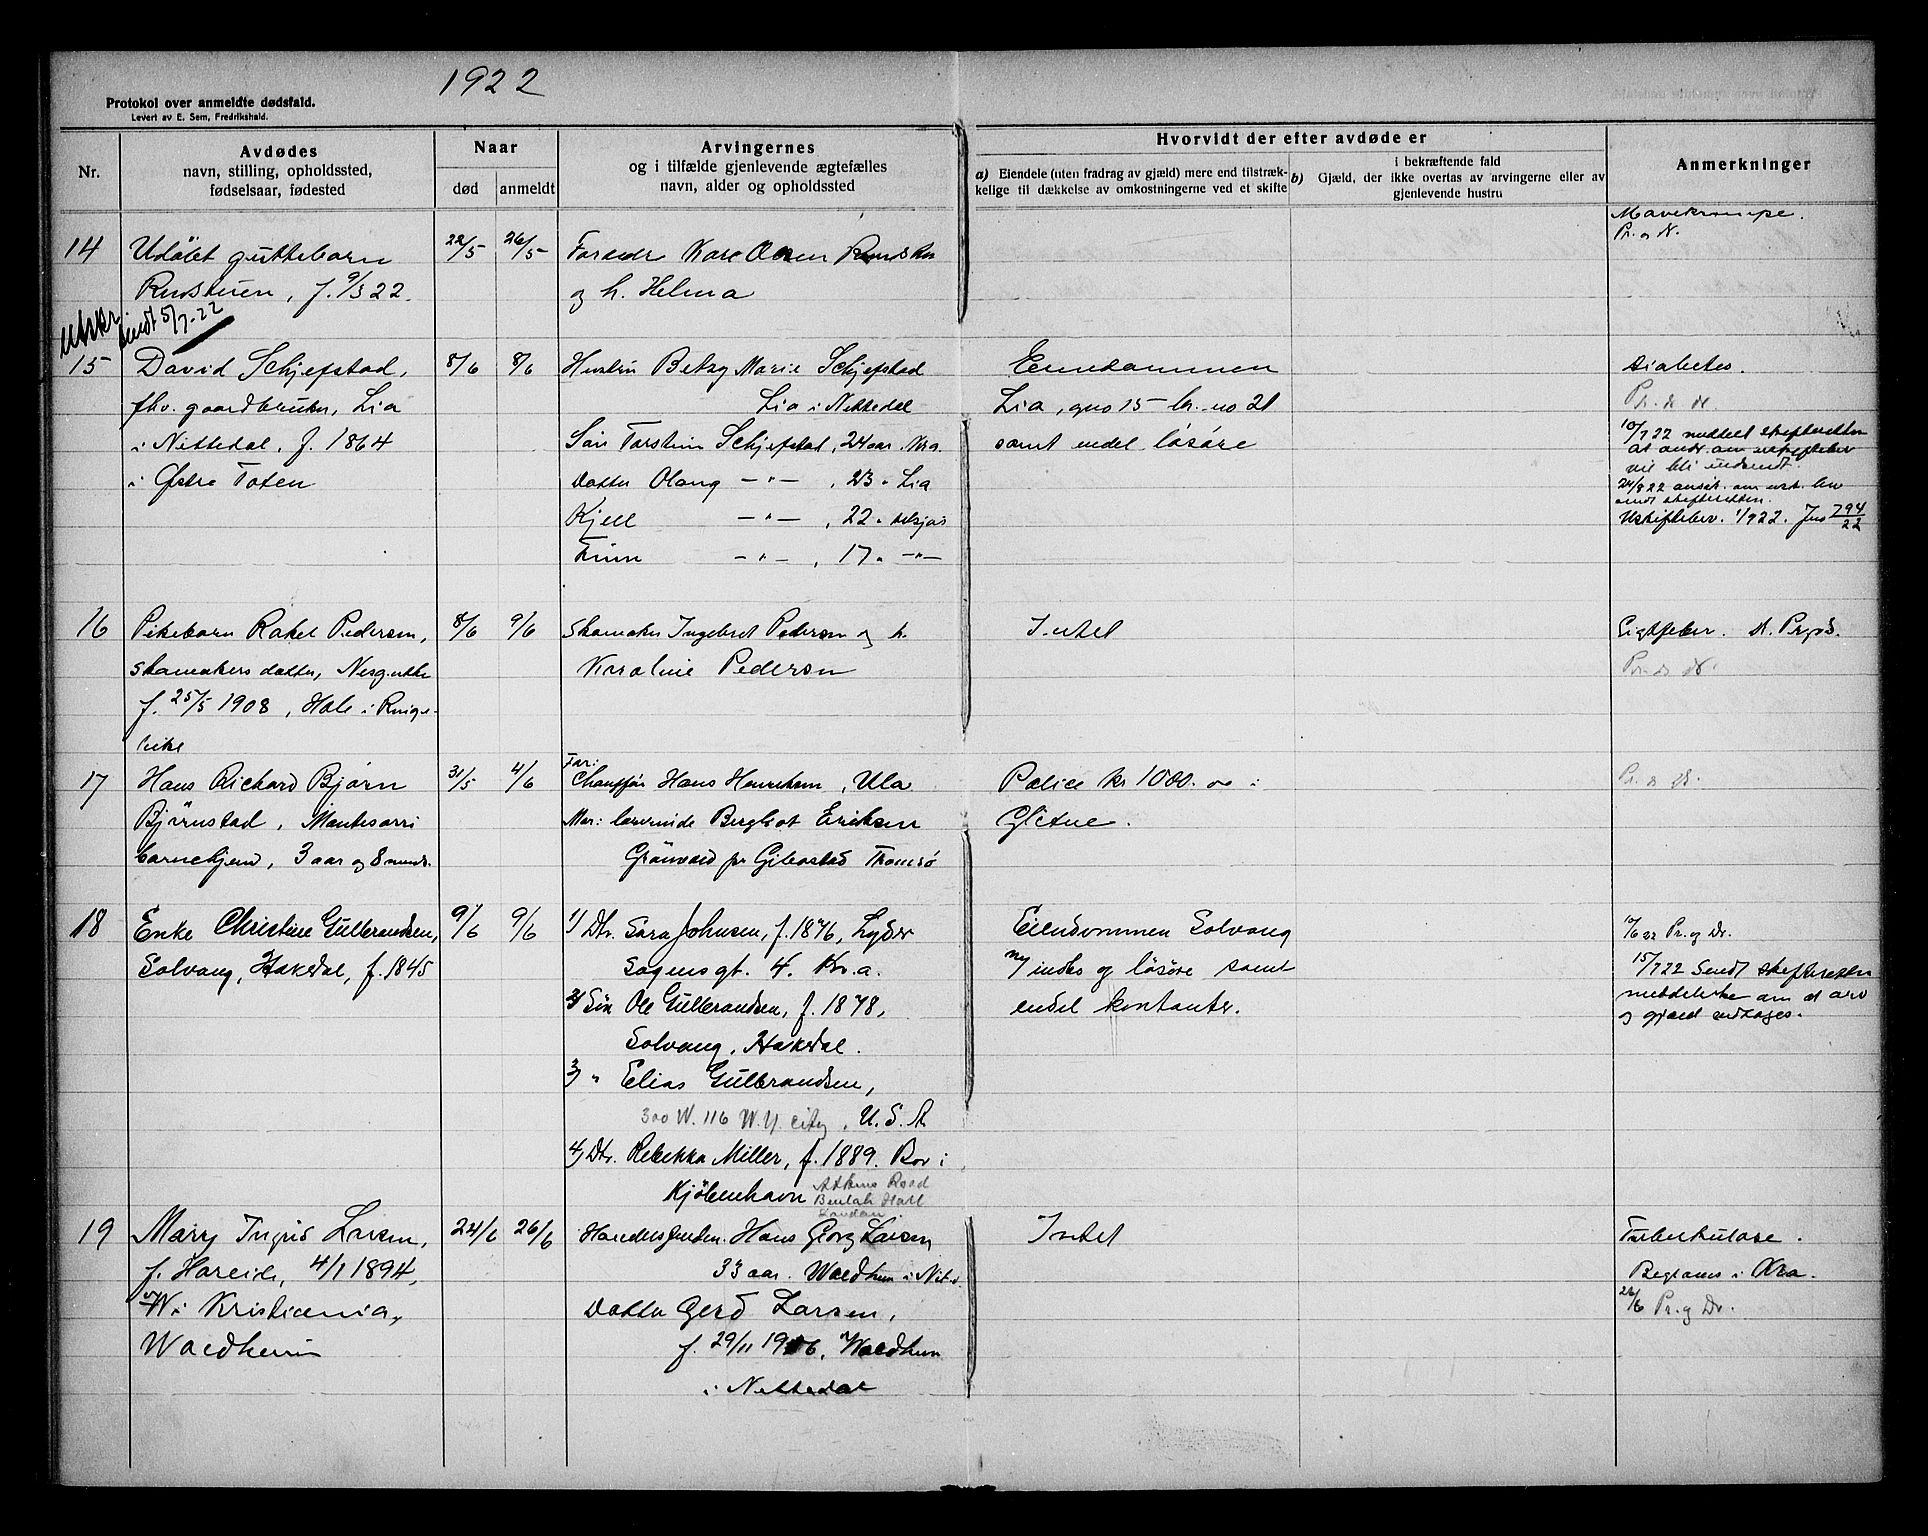 1922
Protokol over anmeldte dødsfald.
Levert av E. Sem, Fredrikshald.
Nr.
Avdødes
navn, stilling, opholdssted,
fødselsaar, fødested
Naar
død anmeldt
Arvingernes
og i tilfælde gjenlevende ægtefælles
navn, alder og opholdssted
Hvorvidt der efter avdøde er
a) Eiendele (uten fradrag av gjæld) mere end tilstræk-
kelige til dækkelse av omkostningerne ved et skifte
i bekræftende fald
b) Gjæld, der ikke overtas av arvingerne eller av
gjenlevende hustru
Anmerkninger
14
Udøbt guttebarn
Rudstuen, f. 9/3 22.
22/5 26/5
Foreldr Kare Olsen
og h. Helma
Mavekrampe.
Pr. og N.
Utskr. sendt 5/7-22
15
David Schjefstad,
fhv. gaardbruker, Lia
i Nittedal, f. 1864
i Østre Toten
8/6 8/6
Hustru Betzy Marie Schjefstad
Lia i Nittedal
Søn Torstein Schjefstad, 24 aar, Kra.
Datter Olaug -"- , 23 " Lia
Kjell -"- , 22 "
-"- , 17 " -"-
Eiendommen
Lia, gno 15 br. no 21
samt endel løsøre
Diabetes.
10/7 22 meddelt skifteretten
at andr. om uskiftebev
vil bli indsendt.
24/8 22 ansøk. om usk. bev
sendt skifteretten.
Uskiftebev. 1/9 22. Jno 794/22
16
Pikebarn Rakel Pedersen,
skomakers datter,
f. 25/5 1908, Hole i Ringe-
rike
8/6 9/6
Skomaker Ingebret Pedersen og h.
Karoline Pedersen
Intet
Gigtfeber.
17
Hans Richard Bjørn
Bjørnstad, Montesorri
barnehjem, 3 aar og 8 mnd.
31/5 4/6
Far:
Chauffør Hans Henriksen, Ula
Mor: lærerinde Bergliot Eriksen
Grønvold pr Gibostad Tromsø
Police kr 1000.00 i
Gjetne.
18
Enke Christine Gulbrandsen,
Solvang, Hakedal, f. 1845
9/6 9/6
1) Dtr. Sara Johnsen, f. 1876, Lyder
Sagens gt. 4. Kr.a.
2) Søn Ole Gulbrandsen, f. 1878,
Solvang, Hakedal.
3) " Elias Gulbrandsen,
300 W. 116 N.Y. city, U.S.A
4) Dtr. Rebekka Miller, f. 1889. Bor i
Kjøbenhavn Atkins Road
Beulah Hall
London.
Eiendommen Solvang
m/ indbo og løsøre samt
endel kontanter.
10/6 22 Pr. og Dr.
15/7 22 Sendt skifteretten
meddelelse om at arv
og gjæld vedtages.
19
Mary Ingrid Larsen,
f. Hareide, 4/1 1894,
i Kristiania,
Waldheim
24/6 26/6
Handelsbetjen. Hans Georg Larsen
33 aar. Waldheim i Nit.d.
Datter Gerd Larsen,
f. 29/11 1916, Waldheim
i Nittedal
Intet
Tuberkulose.
Begraves i Kra.
26/6 Pr. og Dr.